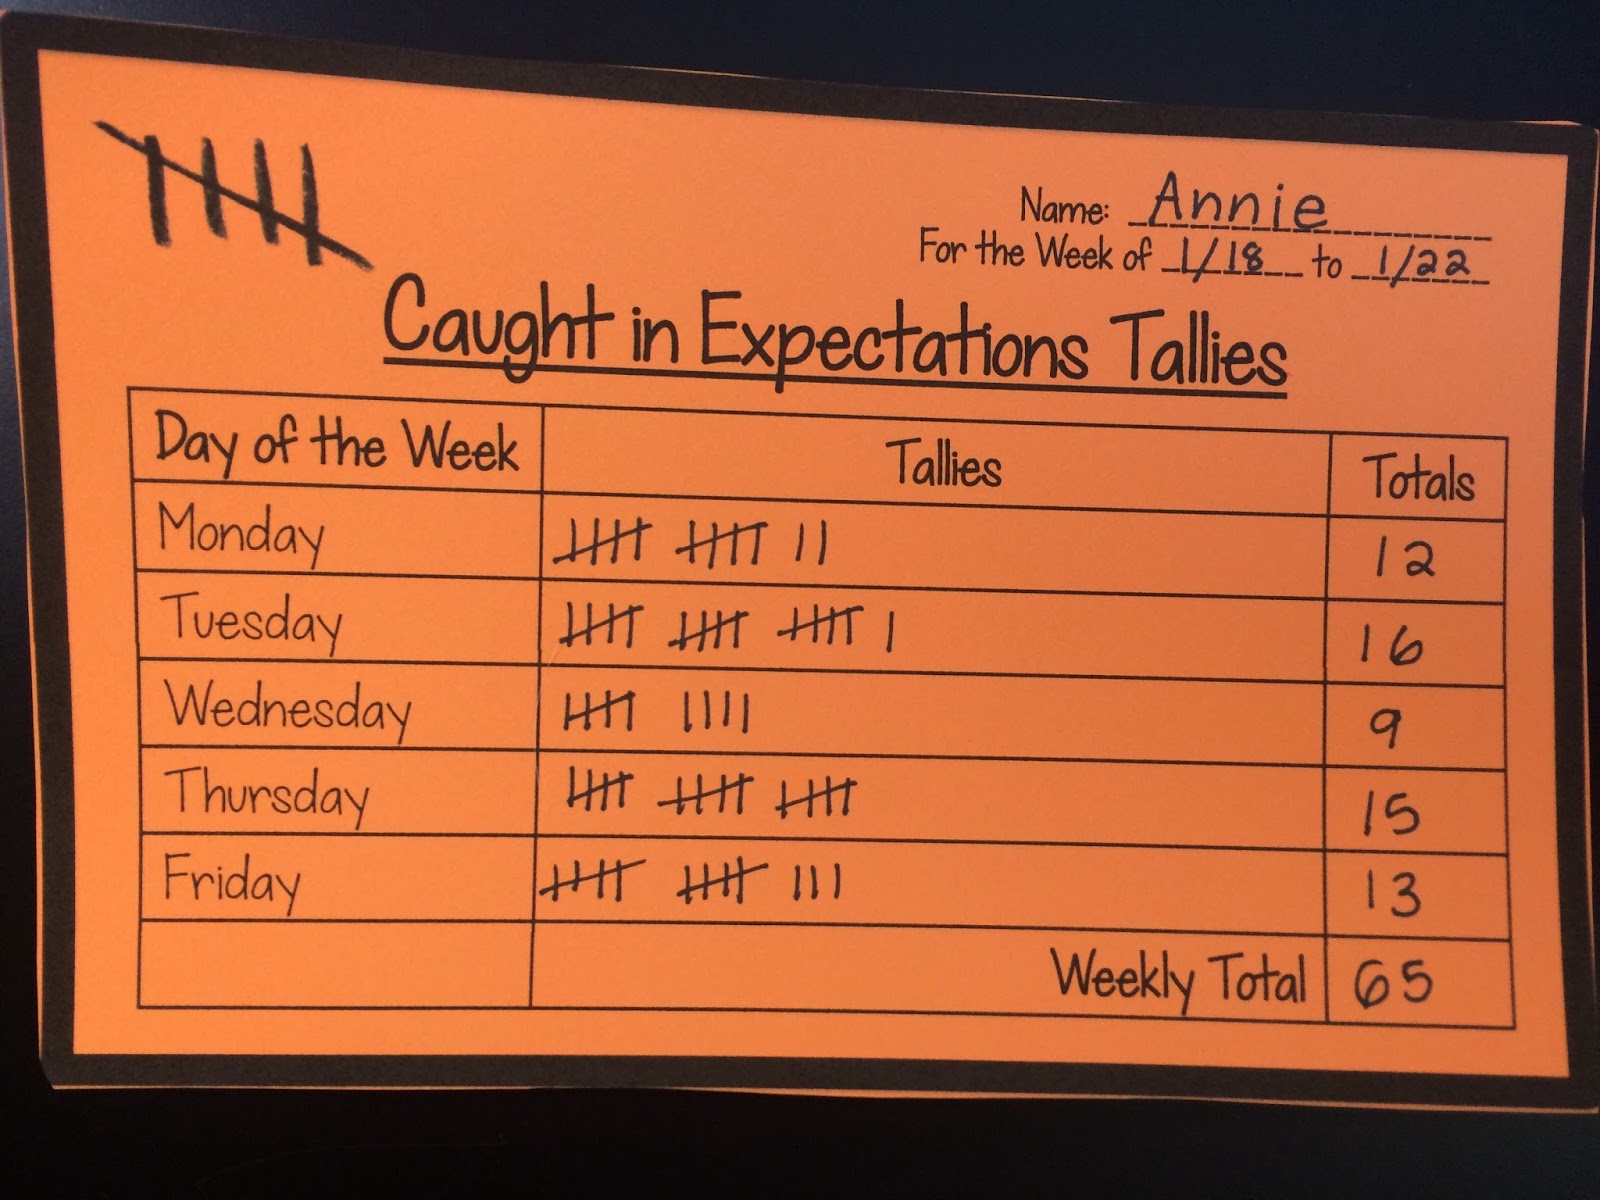 Name: Annie
For the Week of 1/18 to 1/22
Caught in Expectations Tallies
Day of the Week Tallies Totals
Monday 12
Tuesday 16
Wednesday 9
Thursday 15
Friday 13
Weekly Total 65